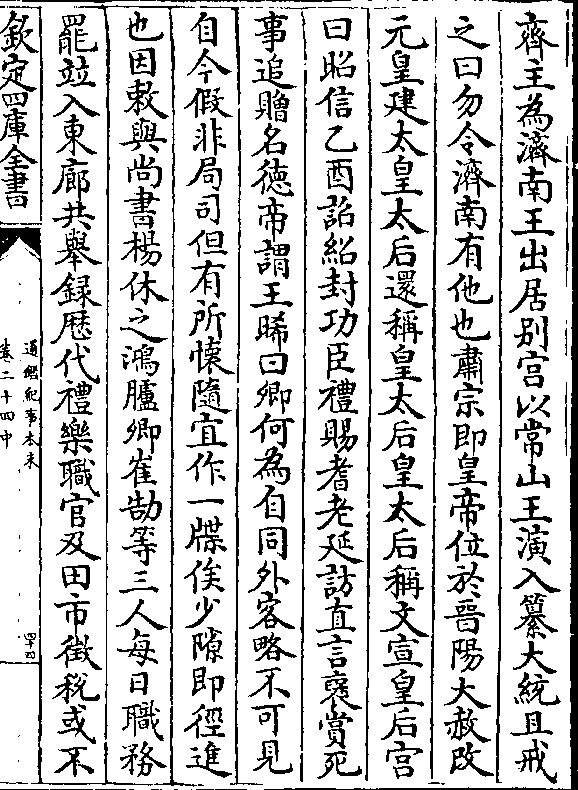 齊主為濟南王出居别宫以常山王演入纂大統且戒
之曰勿令濟南有他也肅宗即皇帝位於晉陽大赦改
元皇建太皇太后還稱皇太后皇太后稱文宣皇后宫
曰昭信乙酉詔紹封功臣禮賜耆老延訪直言褒賞死
事追贈名德帝謂王晞曰卿何為自同外客略不可見
自今假非局司但有所懷隨宜作一牒俟少隙即徑進
也因敕與尚書楊休之鴻臚卿崔劼等三人每日職務
罷竝入東廊共舉録歴代禮樂職官及田市徵税或不
欽定四庫全書
通鑑紀事本末
卷二十四中
四十四